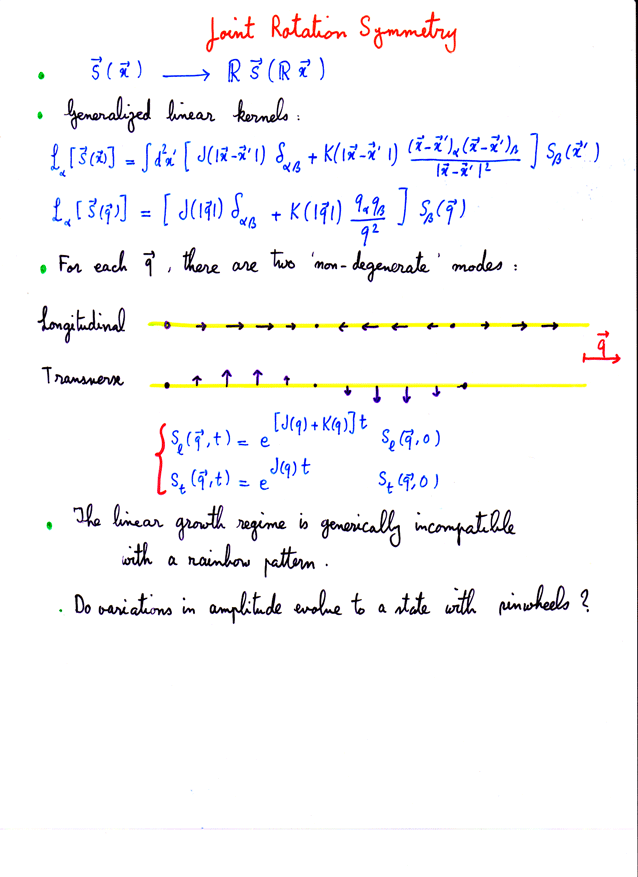 Joint Rotation Symmetry
• S⃗(x⃗) ⟶ ℝ S⃗(ℝ x⃗)
• Generalized linear kernels :
ℒ_α [S⃗(x⃗)] = ∫d²x' [ J(|x⃗-x⃗'|) δ_αβ + K(|x⃗-x⃗'|) (x⃗-x⃗')_α (x⃗-x⃗')_β / |x⃗-x⃗'|² ] S_β(x⃗')
ℒ_α [S⃗(q⃗)] = [ J(|q⃗|) δ_αβ + K(|q⃗|) q_α q_β / q² ] S_β(q⃗)
• For each q⃗, there are two 'non-degenerate' modes :
Longitudinal
q⃗
Transverse
S_ℓ(q⃗,t) = e^{[J(q)+K(q)]t} S_ℓ(q⃗,0)
S_t(q⃗,t) = e^{J(q)t} S_t(q⃗,0)
• The linear growth regime is generically incompatible
with a rainbow pattern.
. Do variations in amplitude evolve to a state with pinwheels ?